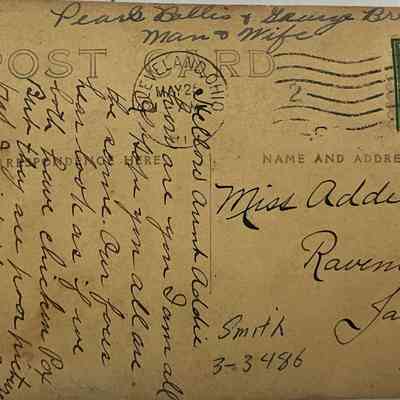 Pearl Bellis & George Br
Man & Wife
POST CARD
CLEVELAND, OHIO
MAY 2
2
CORRESPONDENCE HERE
NAME AND ADDRE
Hellow Aunt Addie
how are you I am all
hope you all are
the same Our faces
near look as if we
both have chicken Pox
But they are
Miss Adde
Raven
Smith
3-3486